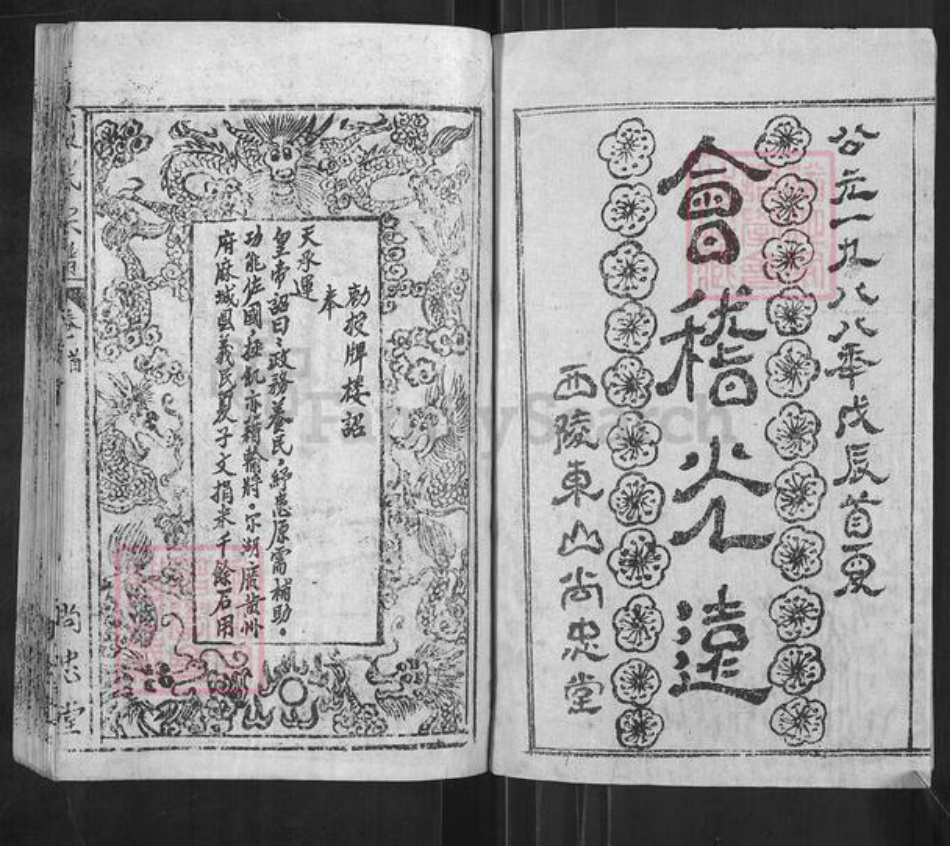 公元一九八八年戊辰首夏
會稽光遠
西陵東山尚忠堂
勅授牌樓詔
奉
天承運
皇帝詔曰政務養民紓患原需補助
功能佐國拯飢亦藉輸將尔湖廣黃州
府麻城县義民夏子文捐米千餘石用
卷首
尚忠堂
FamilySearch